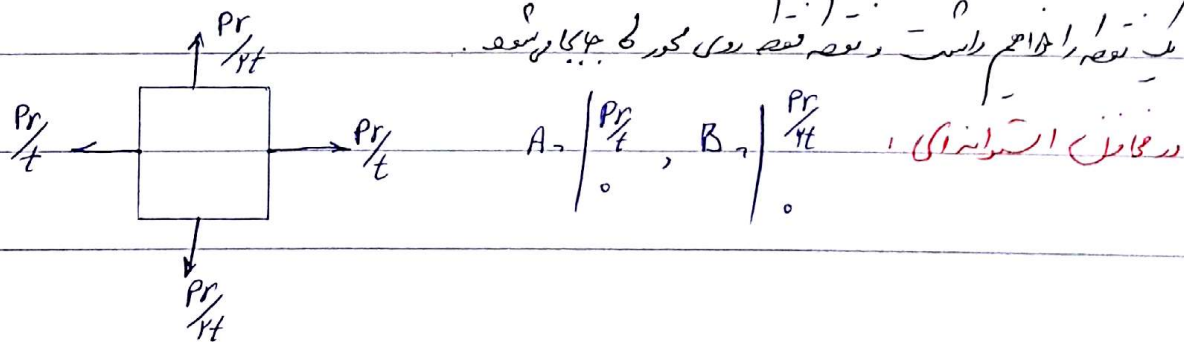 یک نقطه را خواهیم داشت و نقطه فقط روی محور σ جابجا می‌شود.
در مخازن استوانه‌ای:
Pr/۲t
Pr/t
Pr/t A = | Pr/t , ۰ B = | Pr/۲t , ۰
Pr/۲t